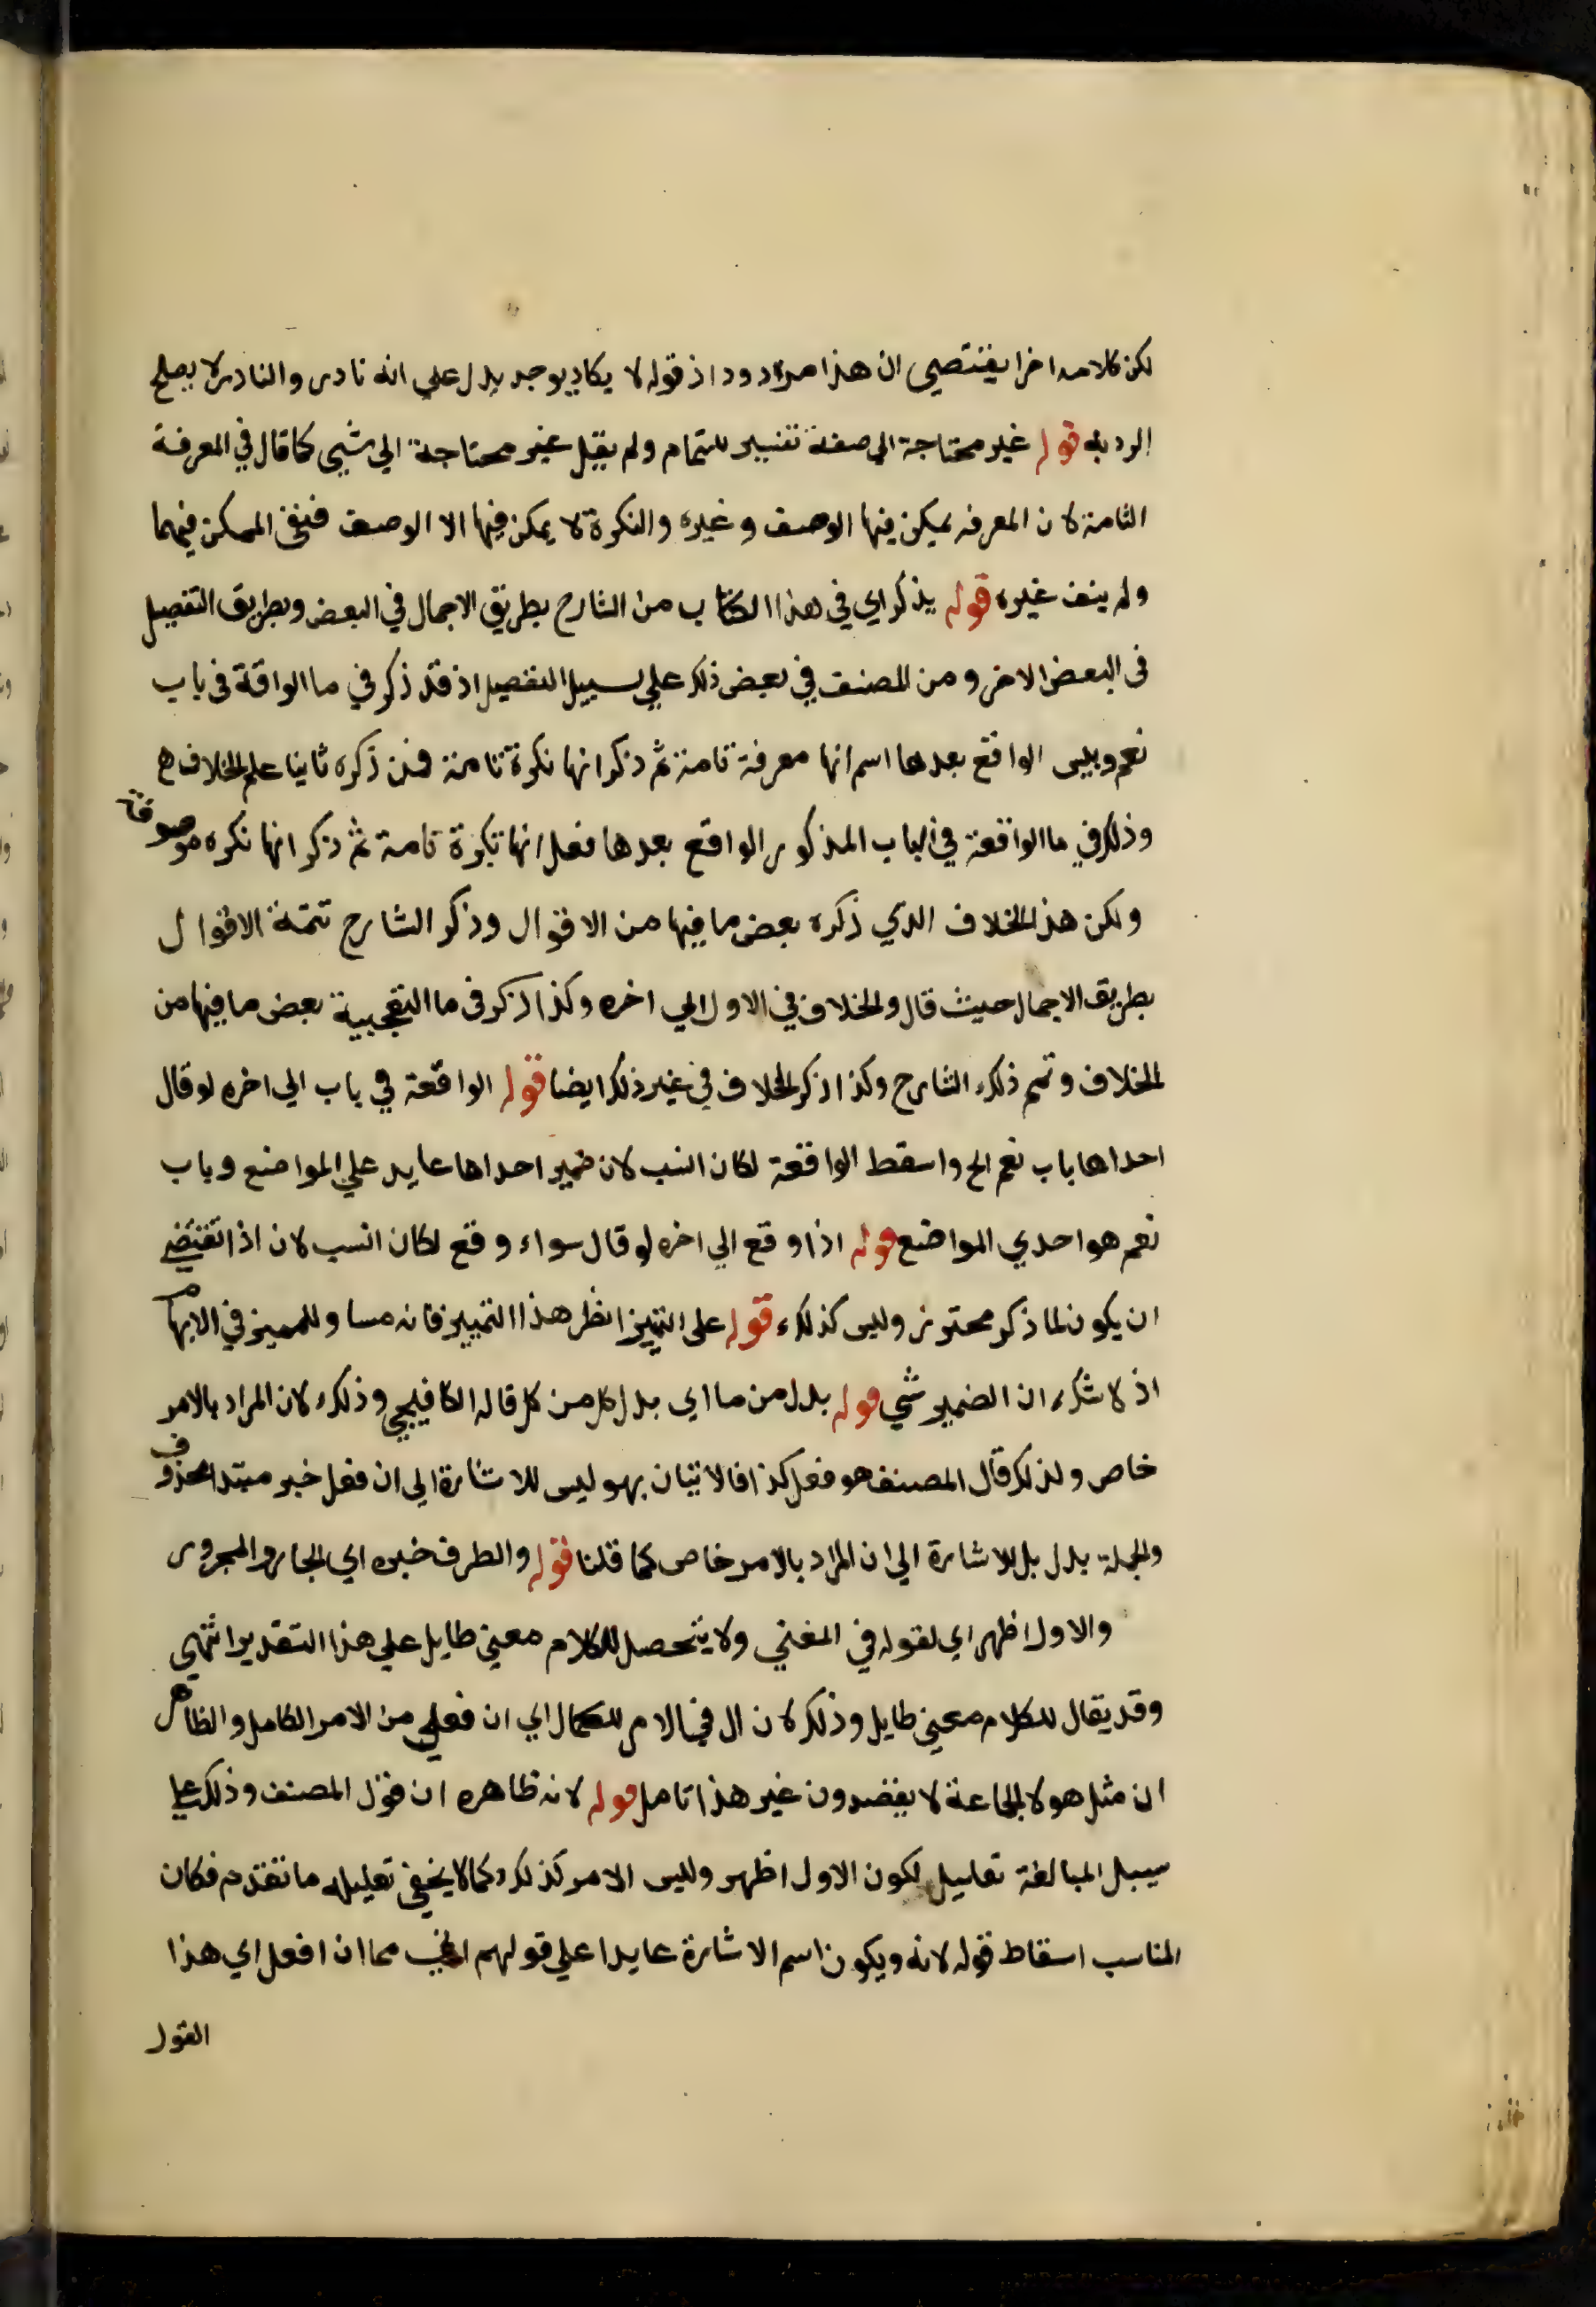 لكن كلامه اخرا يقتضي ان هذا مردود اذ قوله لا يكاد يوجد يدل علي انه نادر والنادر لا يصلح
الرد به قوله غير محتاجة الي صفة تفسير للتمام ولم يقل غير محتاجة الي شيى كما قال في المعرفة
التامة لان المعرفه يمكن فيها الوصف وغيره والنكرة لا يمكن فيها الا الوصف فنفي الممكن فيهما
ولم ينف غيره قوله يذكر اي في هذا الكتاب من الشارح بطريق الاجمال في البعض وبطريق التفصيل
في البعض الاخر ومن المصنف في بعض ذلك علي سبيل التفصيل اذ قد ذكر في ما الواقة في باب
نعم وبيس الواقع بعدها اسم انها معرفة تامة ثم ذكر انها نكرة تامة فمن ذكره ثانيا علم الخلاف ح
وذلك في ما الواقعة في الباب المذكور الواقع بعدها فعل انها نكرة تامة ثم ذكر انها نكره موصوفة
ولكن هذا الخلاف الذي ذكره بعض ما فيها من الاقوال وذكر الشارح تتمة الاقوال
بطريق الاجمال حيث قال والخلاف في الاول الي اخره وكذا ذكر في ما التعجبية بعض ما فيها من
الخلاف وتمم ذلك الشارح وكذا ذكر الخلاف في غير ذلك ايضا قوله الواقعة في باب الي اخره لو قال
احداها باب نعم الخ واسقط الواقعة لكان انسب لان ضمير احداها عايد علي المواضع وباب
نعم هو احدي المواضع قوله اذا وقع الي اخره لو قال سواء وقع لكان انسب لان اذا تقتضي
ان يكون لما ذكر محترز وليس كذلك قوله على التمييز انظر هذا التمييز فانه مساو للمميز في الابهام
اذ لا شك ان الضمير شي قوله بدل من ما اي بدل كل من كل قاله الكافيجي وذلك لان المراد بالامر
خاص ولذلك قال المصنف هو فعل كذا فالاتيان بهو ليس للاشارة الي ان فعل خبر مبتدا محذوف
والجملة بدل بل للاشارة الي ان المراد بالامر خاص كما قلنا قوله والظرف خبره اي الجار والمجرور
والاول اظهر اي لقوله في المغني ولا يتحصل للكلام معني طايل علي هذا التقدير انتهي
وقد يقال للكلام معني طايل وذلك لان ال في الامر للكمال اي ان فعلي من الامر الكامل والظاهر
ان مثل هولا الجاعة لا يقصدون غير هذا تامل قوله لانه ظاهره ان قول المصنف وذلك علي
سبيل المبالغة تعليل لكون الاول اظهر وليس الامر كذلك كما لا يخفي تعليله ما تقدم فكان
المناسب اسقاط قوله لانه ويكون اسم الاشارة عايدا علي قولهم اني مما ان افعل اي هذا
القول